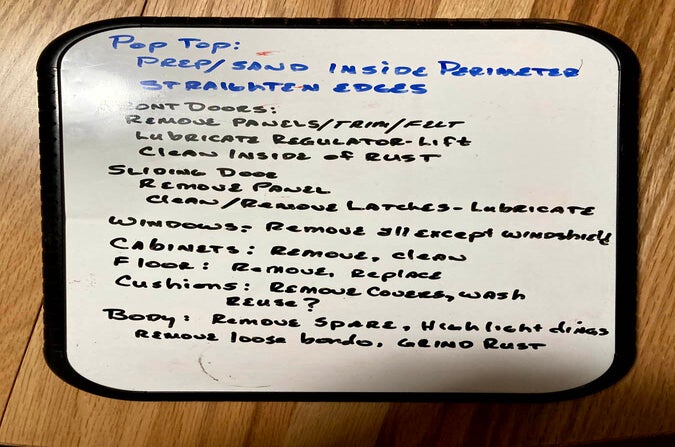 Pop Top:
PREP/SAND INSIDE PERIMETER
STRAIGHTEN EDGES
FRONT DOORS:
REMOVE PANELS/TRIM/FELT
LUBRICATE REGULATOR-Lift
CLEAN INSIDE of RUST
SLIDING DOOR
REMOVE PANEL
CLEAN/REMOVE LATCHES-LUBRICATE
WINDOWS: REMOVE all EXCEPT WINDSHIELD
CABINETS: REMOVE, clean
FLOOR: REMOVE, REPLACE
Cushions: REMOVE COVERS, WASH
REUSE?
BODY: REMOVE SPARE, Highlight dings
REMOVE loose bondo, GRIND RUST